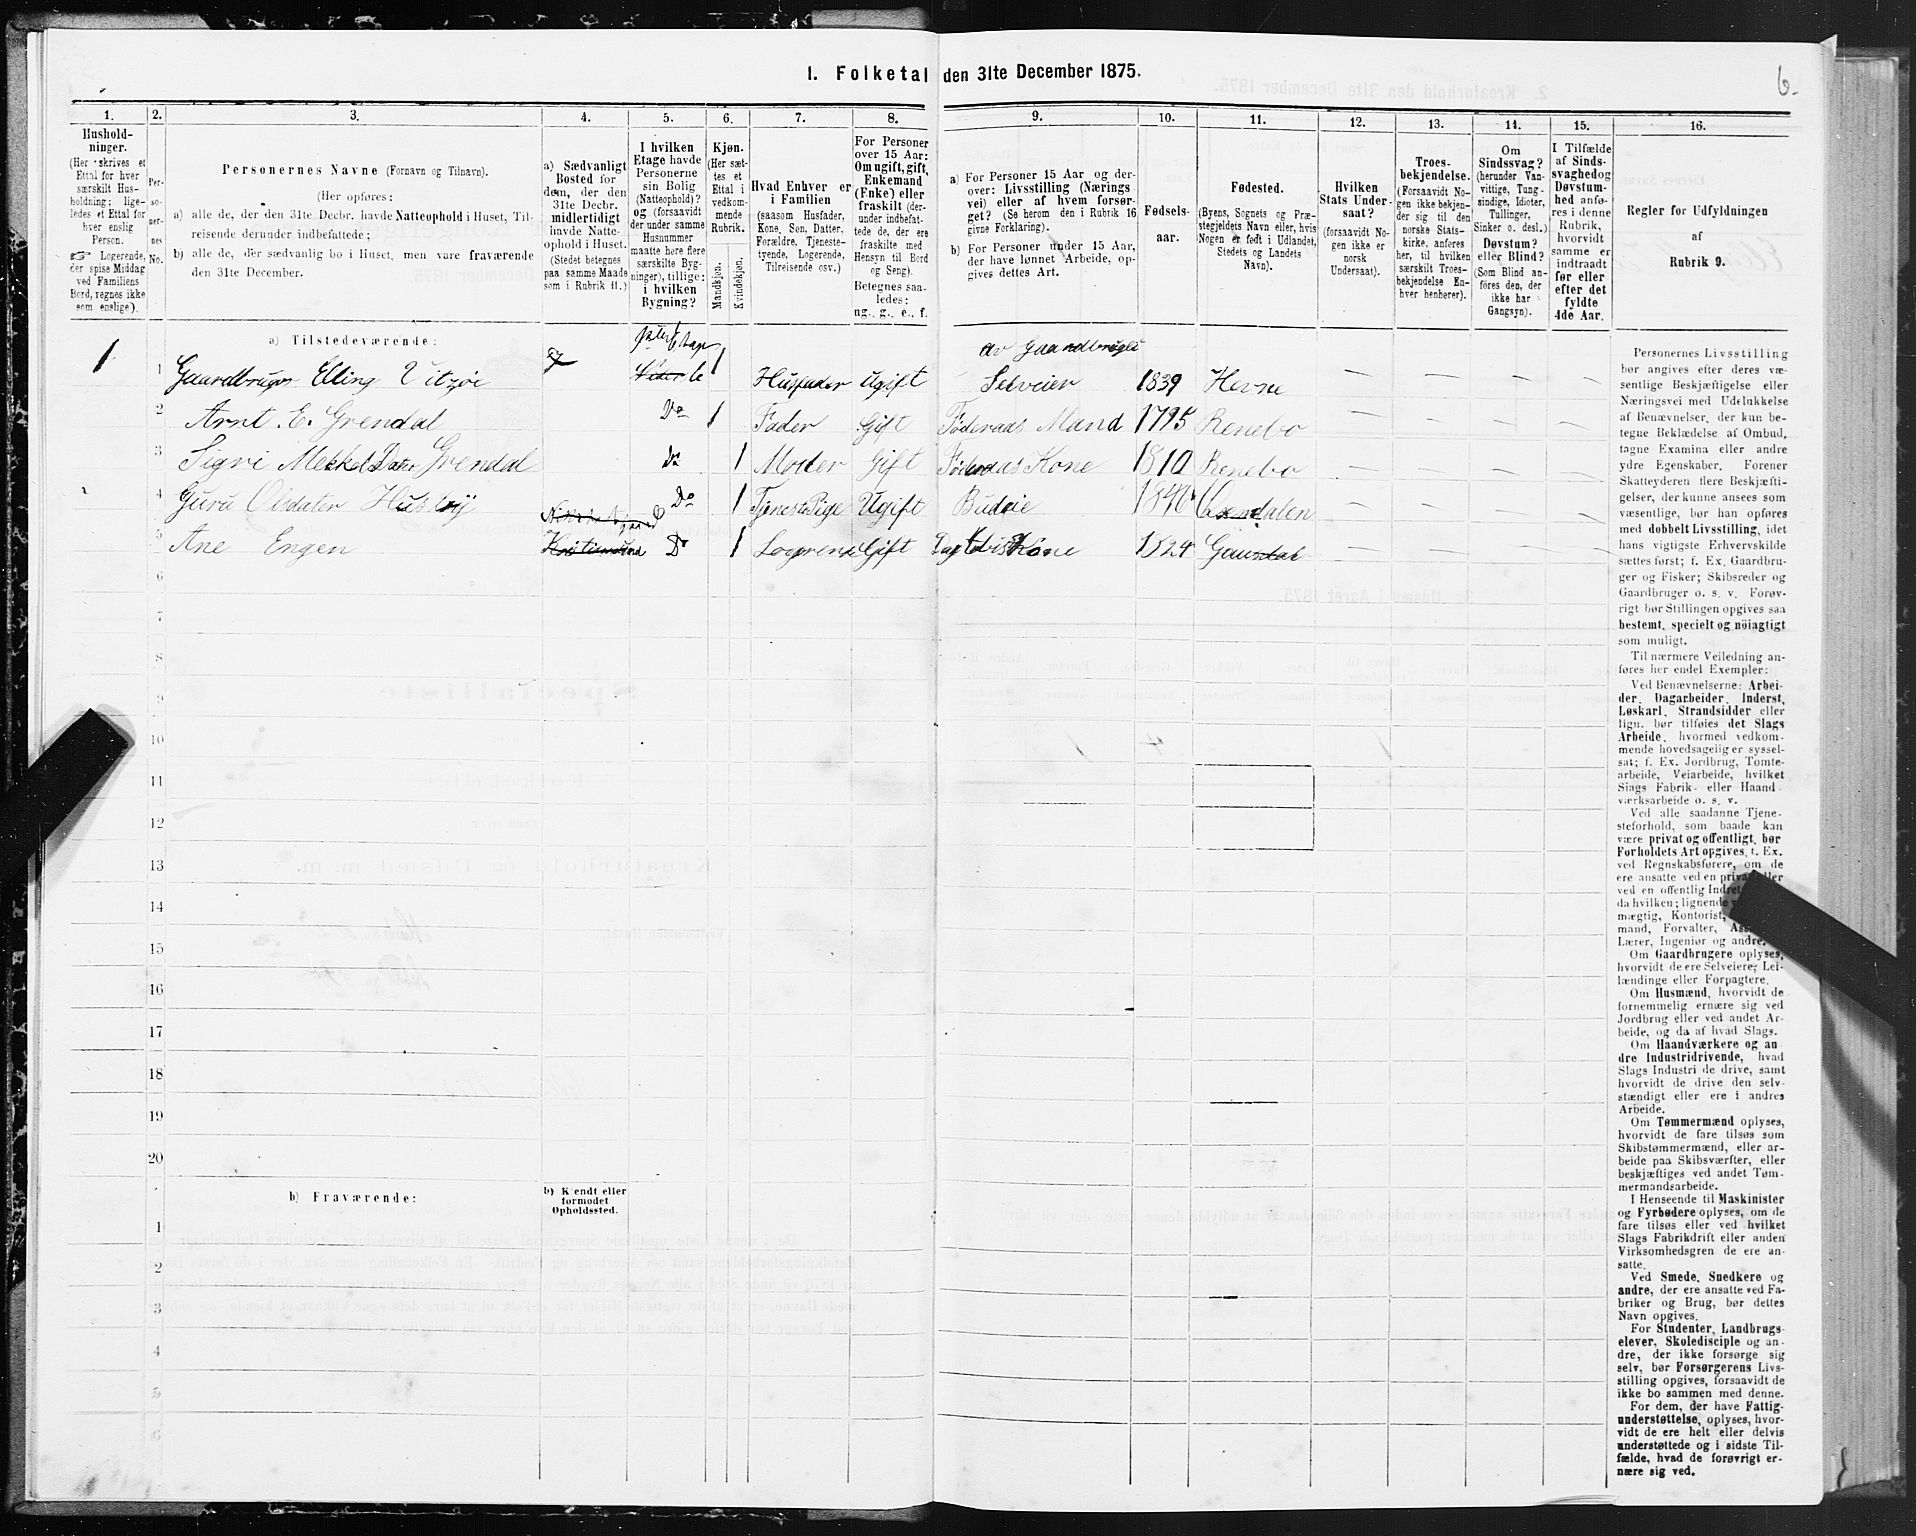 1. Folketal den 31te December 1875.
6.
1.
2.
3.
4.
5.
6.
7.
8.
9.
10.
11.
12.
13.
14.
15.
16.
Hushold-
ninger.
(Her skrives et
Ettal for hver
særskilt Hus-
holdning; lige-
ledes et Ettal for
hver enslig
Person.
☞ Logerende,
der spise Middag
ved Familiens
Bord, regnes ikke
som enslige).
Per-
so-
ner-
nes
No.
Personernes Navne (Fornavn og Tilnavn).
(Her opføres:
a) alle de, der den 31te Decbr. havde Natteophold i Huset, Til-
reisende derunder indbefattede;
b) alle de, der sædvanlig bo i Huset, men vare fraværende
den 31te December.
a) Sædvanligt
Bosted for
dem, der den
31te Decbr.
midlertidigt
havde Natte-
ophold i Huset.
(Stedet betegnes
paa samme Maade
som i Rubrik 11.)
I hvilken
Etage havde
Personerne
sin Bolig
(Natteophold)?
og (forsaavidt
der under samme
Husnummer
maatte høre flere
særskilte Byg-
ninger), tillige:
i hvilken
Bygning?
Kjøn.
(Her sæt-
tes et
Ettal i
vedkom-
mende
Rubrik.
Mandkjøn.
Kvindekjøn.
Hvad Enhver er
i Familien
(saasom Husfader,
Kone, Søn, Datter,
Forældre, Tjeneste-
tyende, Logerende,
Tilreisende osv.)
For Personer
over 15 Aar:
Om ugift, gift,
Enkemand
(Enke) eller
fraskilt (der-
under indbefat-
tede de, der ere
fraskilte med
Hensyn til Bord
og Seng).
Betegnes saa-
ledes:
ug., g., e., f.
a) For Personer 15 Aar og der-
over: Livsstilling (Nærings-
vei) eller af hvem forsør-
get? (Se herom den i Rubrik 16
givne Forklaring).
b) For Personer under 15 Aar,
der have lønnet Arbeide, op-
gives dettes Art.
Fødsels-
aar.
Fødested.
(Byens, Sognets og Præ-
stegjeldets Navn eller, hvis
Nogen er født i Udlandet,
Stedets og Landets
Navn).
Hvilken
Stats Under-
saat?
(forsaavidt No-
gen ikke er
norsk
Undersaat).
Troes-
bekjendelse.
(Forsaavidt No-
gen ikke bekjen-
der sig til den
norske Stats-
kirke, anføres
her, til hvilken
særskilt Troes-
bekjendelse En-
hver henhører).
Om
Sindssvag?
(herunder Van-
vittige, Tung-
sindige, Idioter,
Tullinger,
Sinker o. desl.)
Døvstum?
eller Blind?
(Som Blind an-
føres den, der
ikke har
Gangsyn).
I Tilfælde
af Sinds-
svaghed og
Døvstum-
hed anfø-
res i denne
Rubrik,
hvorvidt
samme er
indtraadt
før eller
efter det
fyldte
4de Aar.
Regler for Udfyldningen
af
Rubrik 9.
a) Tilstedeværende:
1
1 Gaardbruger Elling Vitzøe 1 Husfader Ugift Selveier 1839 Hevne
2 Arnt E. Grendal Do 1 Fader Gift Føderaas Mand 1795 Renebo
3 Sigri Mekkel Dater Grendal Do 1 Moder Gift Føderaas Kone 1810 Renebo
4 Guru Olsdater Do 1 Tjenste Pige Ugift Budeie 1846
5 Ane Engen Kristiansund Do 1 Logerende Gift Kone 1824
6
7
8
9
10
11
12
13
14
15
16
17
18
19
20
b) Fraværende:
b) Kjendt eller
formodet
Opholdssted.
1
2
3
4
5
6
Personernes Livsstilling
bør angives efter deres væ-
sentlige Beskjæftigelse eller
Næringsvei med Udelukkelse
af Benævnelser, der kun be-
tegne Beklædelse af Ombud,
tagne Examina eller andre
ydre Egenskaber. Forener
Skatteyderen flere Beskjæfti-
gelser, der kunne ansees som
væsentlige, bør han opføres
med dobbelt Livsstilling, idet
hans vigtigste Erhvervskilde
sættes først; f. Ex. Gaardbru-
ger og Fisker; Skibsreder og
Gaardbruger o. s. v. Forøv-
rigt bør Stillingen opgives saa
bestemt, specielt og nöiagtigt
som muligt.
Til nærmere Veiledning an-
føres her endel Exempler:
Ved Benævnelserne: Arbei-
der, Dagarbeider, Inderst,
Løskarl, Strandsidder eller
lign. bør tilføies det Slags
Arbeide, hvormed vedkom-
mende hovedsagelig er syssel-
sat; f. Ex. Jordbrug, Tomte-
arbeide, Veiarbeide, hvilket
Slags Fabrik- eller Haand
værksarbeide o. s. v.
Ved alle saadanne Tjene-
steforhold, som baade kan
være privat og offentligt, bør
Forholdets Art opgives, t. Ex.
ved Regnskabsførere, om de
ere ansatte ved en privat eller
ved en offentlig
da hvilken; lignende
mægtig, Kontorist,
mand, Forvalter,
Lærer, Ingeniør og andre.
Om Gaardbrugere oplyses,
hvorvidt de ere Selveiere, Lei-
lændinge eller Forpagtere.
Om Husmænd, hvorvidt de
fornemmelig ernære sig ved
Jordbrug eller ved andet Ar-
beide, og da af hvad Slags.
Om Haandværkere og an
dre Industridrivende, hvad
Slags Industri de drive, samt
hvorvidt de drive den selv-
stændigt eller ere i andres
Arbeide.
Om Tømmermænd oplyses,
hvorvidt de fare tilsøs som
Skibstømmermænd, eller ar-
beide paa Skibsværfter, eller
beskjæftiges ved andet Tøm-
mermandsarbeide.
I Henseende til Maskinister
og Fyrbødere oplyses, om de
fare tilsøs eller ved hvilket
Slags Fabrikdrift eller anden
Virksomhedsgren de ere an-
satte.
Ved Smede, Snedkere og
andre, der ere ansatte ved Fa-
briker og Brug, bør dettes
Navn opgives.
For Studenter, Landbrugs-
elever, Skoledisciple og an-
dre, der ikke forsørge sig
selv, bør Forsørgerens Livs-
stilling opgives, forsaavidt de
ikke bo sammen med denne.
For dem, der have Fattig-
understøttelse, oplyses, hvor-
vidt de ere helt eller delvis
understøttede og i sidste Til-
fælde, hvad de forøvrigt er-
nære sig ved.